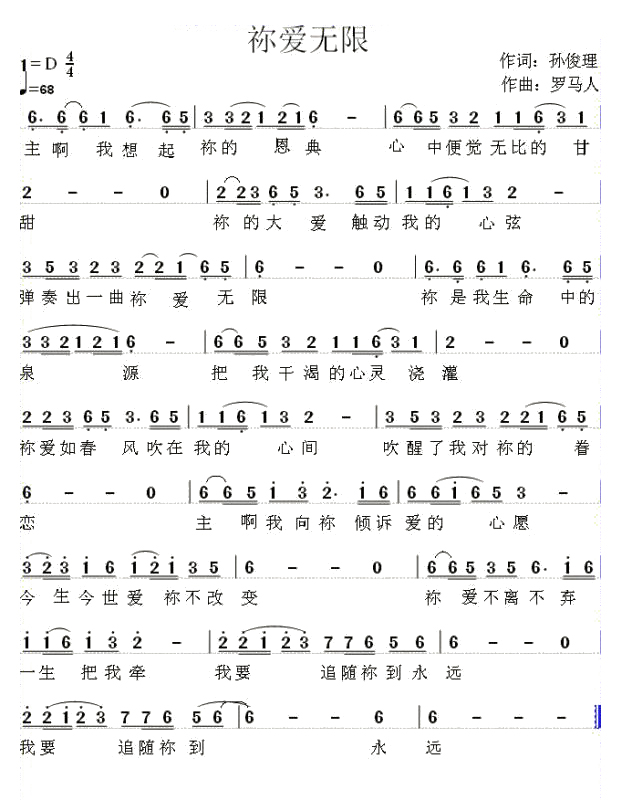 祢爱无限
1=D 4/4
作词：孙俊理
♩=68
作曲：罗马人
6. 6 6 1 6. 6 5 | 3 3 2 1 2 1 6 - | 6 6 5 3 2 1 1 6 3 1
主啊 我想起 祢的 恩典 心 中便觉无比的甘
2 - - 0 | 2 2 3 6 5 3. 6 5 | 1 1 6 1 3 2 -
甜 祢的大爱触动我的 心弦
3 5 3 2 3 2 2 1 6 5 | 6 - - 0 | 6. 6 6 1 6. 6 5
弹奏出一曲祢 爱 无限 祢是我生命中的
3 3 2 1 2 1 6 - | 6 6 5 3 2 1 1 6 3 1 | 2 - - 0
泉 源 把 我干渴的心灵 浇灌
2 2 3 6 5 3. 6 5 | 1 1 6 1 3 2 - | 3 5 3 2 3 2 2 1 6 5
祢爱如春 风吹在我的 心间 吹醒了我对祢的 眷
6 - - 0 | 6 6 5 1 3 2. 1 6 | 6 6 1 6 5 3 -
恋 主 啊我向祢 倾诉爱的 心愿
3 2 3 1 6 1 2 1 3 5 | 6 - - 0 | 6 6 5 3 5 6. 1 6
今生今世爱 祢不改变 祢 爱不离不弃
1 1 6 1 3 2 - | 2 2 1 2 3 7 7 6 5 6 | 6 - - 0
一生 把我牵 我要 追随祢到永远
2 2 1 2 3 7 7 6 5 6 6 | 6 - - 6 | 6 - -
我要 追随祢到 永 远